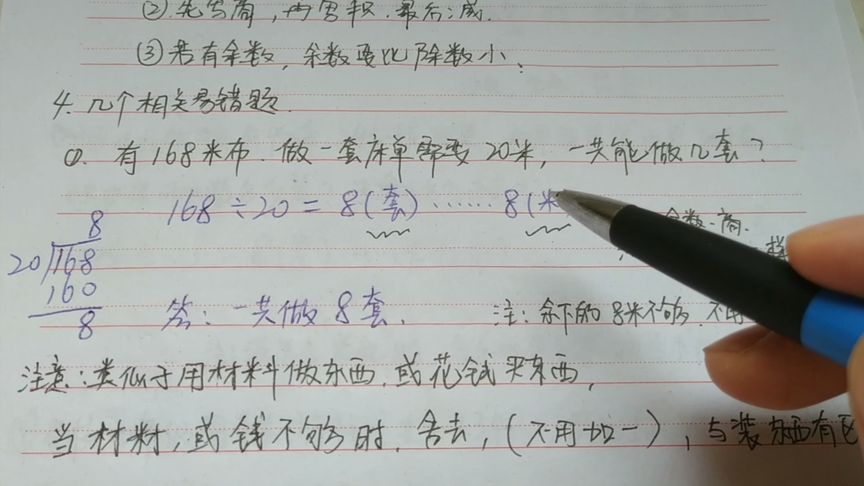 ②. 先写商, 再写积. 最后:减.
③ 若有余数, 余数要比除数小;
4. 几个相关易错题.
①. 有168米布. 做一套床单需要20米, 一共能做几套?
168÷20=8(套)……8(米
余数. 商.
8
20
168
160
8
答: 一共做8套.
注: 余下的8米不够. 不用
注意:类似于用材料做东西, 或花钱买东西,
当材料, 或钱不够时, 舍去, (不用加一), 与装东西有区